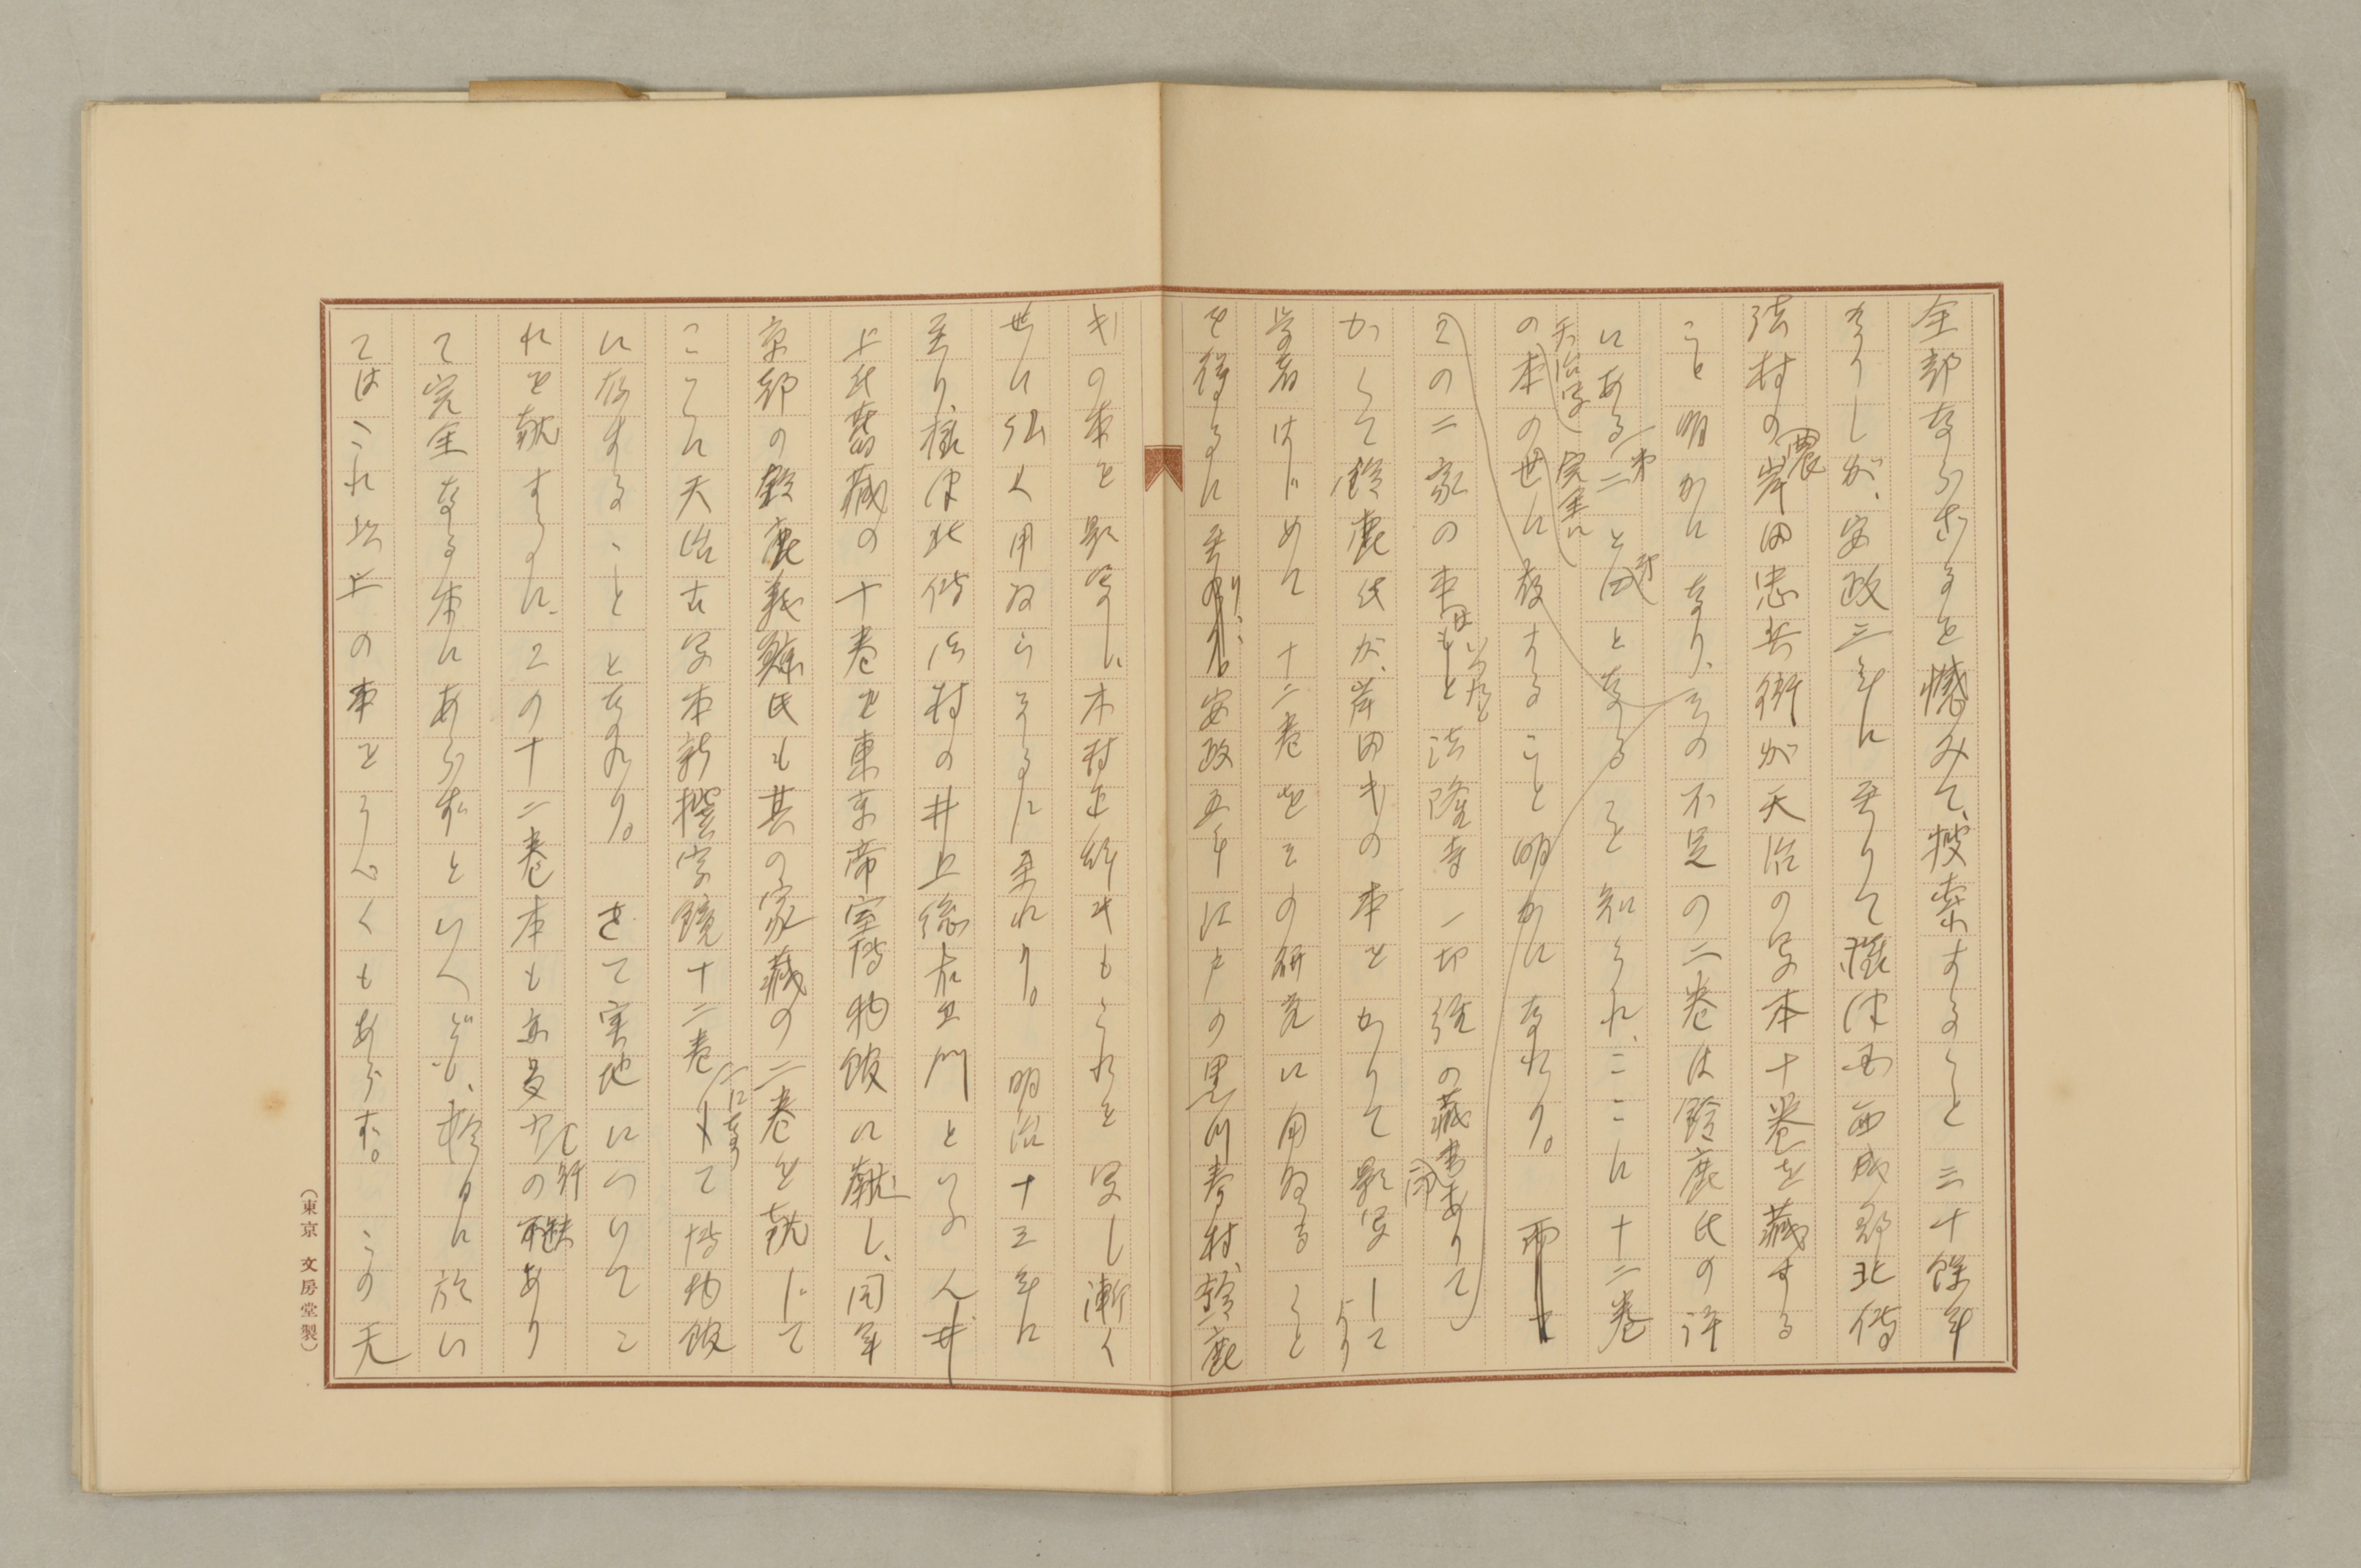 全部ならざるを憾みて、捜索すること三十餘年
なりしが、安政三年に至りて攝津国西成郡北傳
法村の農岸田忠兵衛が天治の写本十巻を蔵する
こと明かになり、その不足の二巻は鈴鹿氏の許
にある第二と第四となることを知られ、ここに十二巻
の天治写本の完全に世に存すること明かになれり。
この二家の本はいづれももと法隆寺一切経の蔵書印ありて
かくて鈴鹿氏が、岸田氏の本をかりて影写してより
学者はじめて十二巻をその研究に用ゐること
を得るに至りし、安政五年江戸の黒川春村、鈴鹿
氏の本を影写し、木村正辞氏もこれを写し漸く
世に弘く用ゐらるるに至れり。 明治十三年に
至り、攝津北傳法村の井上総右衛門といふ人井
上氏舊蔵の十巻を東京帝室博物館に献じ、同年
京都の鈴鹿義鯨氏も其の家蔵の二巻を献じて
ここに天治古写本新撰字鏡十二巻一つになりて博物館
に存することとなれり。 さて実地についてこ
れを観するに、この十二巻本も亦多少の欠あり
て完全なる本にあらずといへども、於い
てはこれ以上の本をうべくもあらず。 この天
(東京 文房堂製)